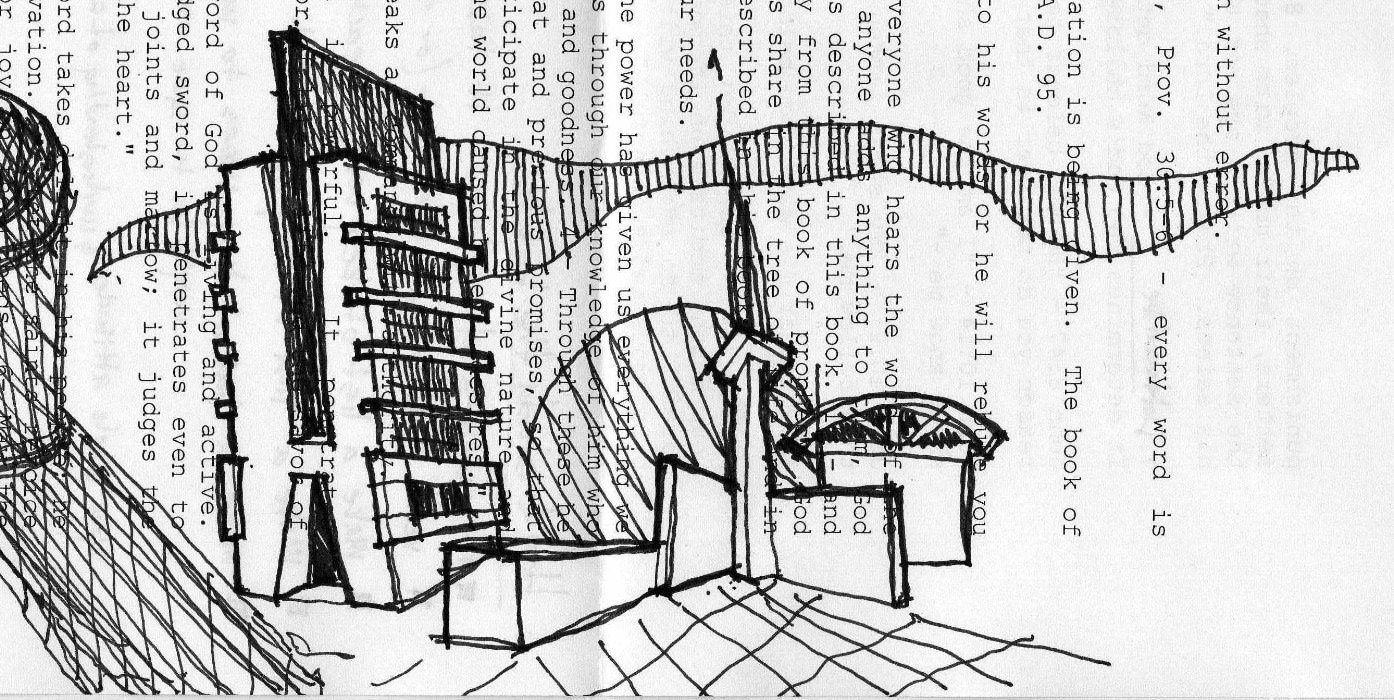 n without error.
, Prov. 30:5-6 - every word is
ation is being given. The book of
A.D. 95.
to his words or he will rebuke you
veryone who hears the words of the
anyone adds anything to them, God
s described in this book. and
y from this book of God
s share in the tree of and in
escribed in this book
ur needs.
ne power has given us everything we
s through our knowledge of him who
and goodness. 4- Through these he
at and precious promises, so that
ticipate in the divine nature and
he world caused by evil desires."
eaks a authority.
It
or savor of
ord of God is living and active.
dged sword, it penetrates even to
joints and marrow; it judges the
he heart."
ord takes delight in his people; he
vation. the saints rejoice
r joy